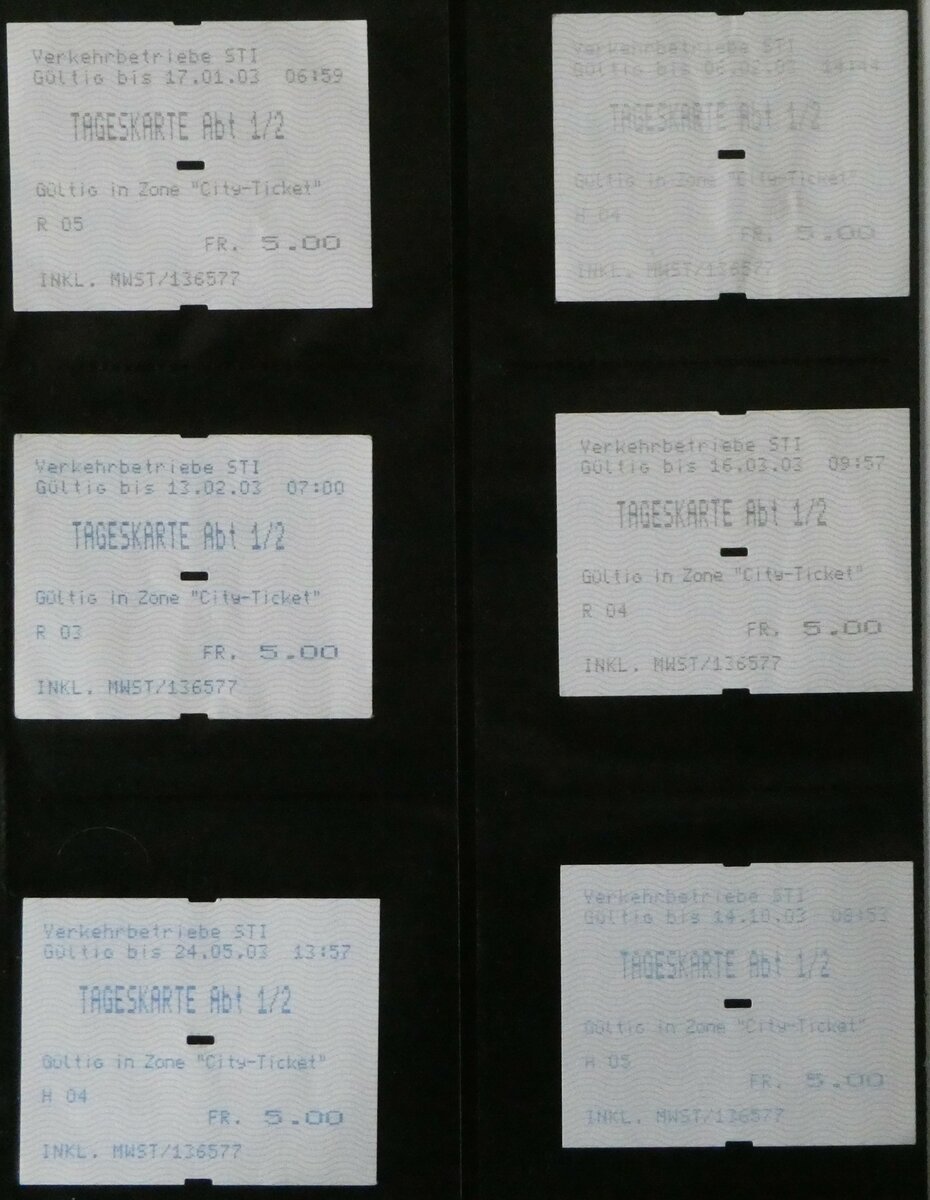 Verkehrbetriebe STI
Gültig bis 17.01.03 06:59
TAGESKARTE Abt 1/2
Gültig in Zone "City-Ticket"
R 05
FR. 5.00
INKL. MWST/136577
Verkehrbetriebe STI
Gültig bis 06.02.03 14:44
TAGESKARTE Abt 1/2
Gültig in Zone "City-Ticket"
H 04
FR. 5.00
INKL. MWST/136577
Verkehrbetriebe STI
Gültig bis 13.02.03 07:00
TAGESKARTE Abt 1/2
Gültig in Zone "City-Ticket"
R 03
FR. 5.00
INKL. MWST/136577
Verkehrbetriebe STI
Gültig bis 16.03.03 09:57
TAGESKARTE Abt 1/2
Gültig in Zone "City-Ticket"
R 04
FR. 5.00
INKL. MWST/136577
Verkehrbetriebe STI
Gültig bis 24.05.03 13:57
TAGESKARTE Abt 1/2
Gültig in Zone "City-Ticket"
H 04
FR. 5.00
INKL. MWST/136577
Verkehrbetriebe STI
Gültig bis 14.10.03
TAGESKARTE Abt 1/2
Gültig in Zone "City-Ticket"
H 05
FR. 5.00
INKL. MWST/136577